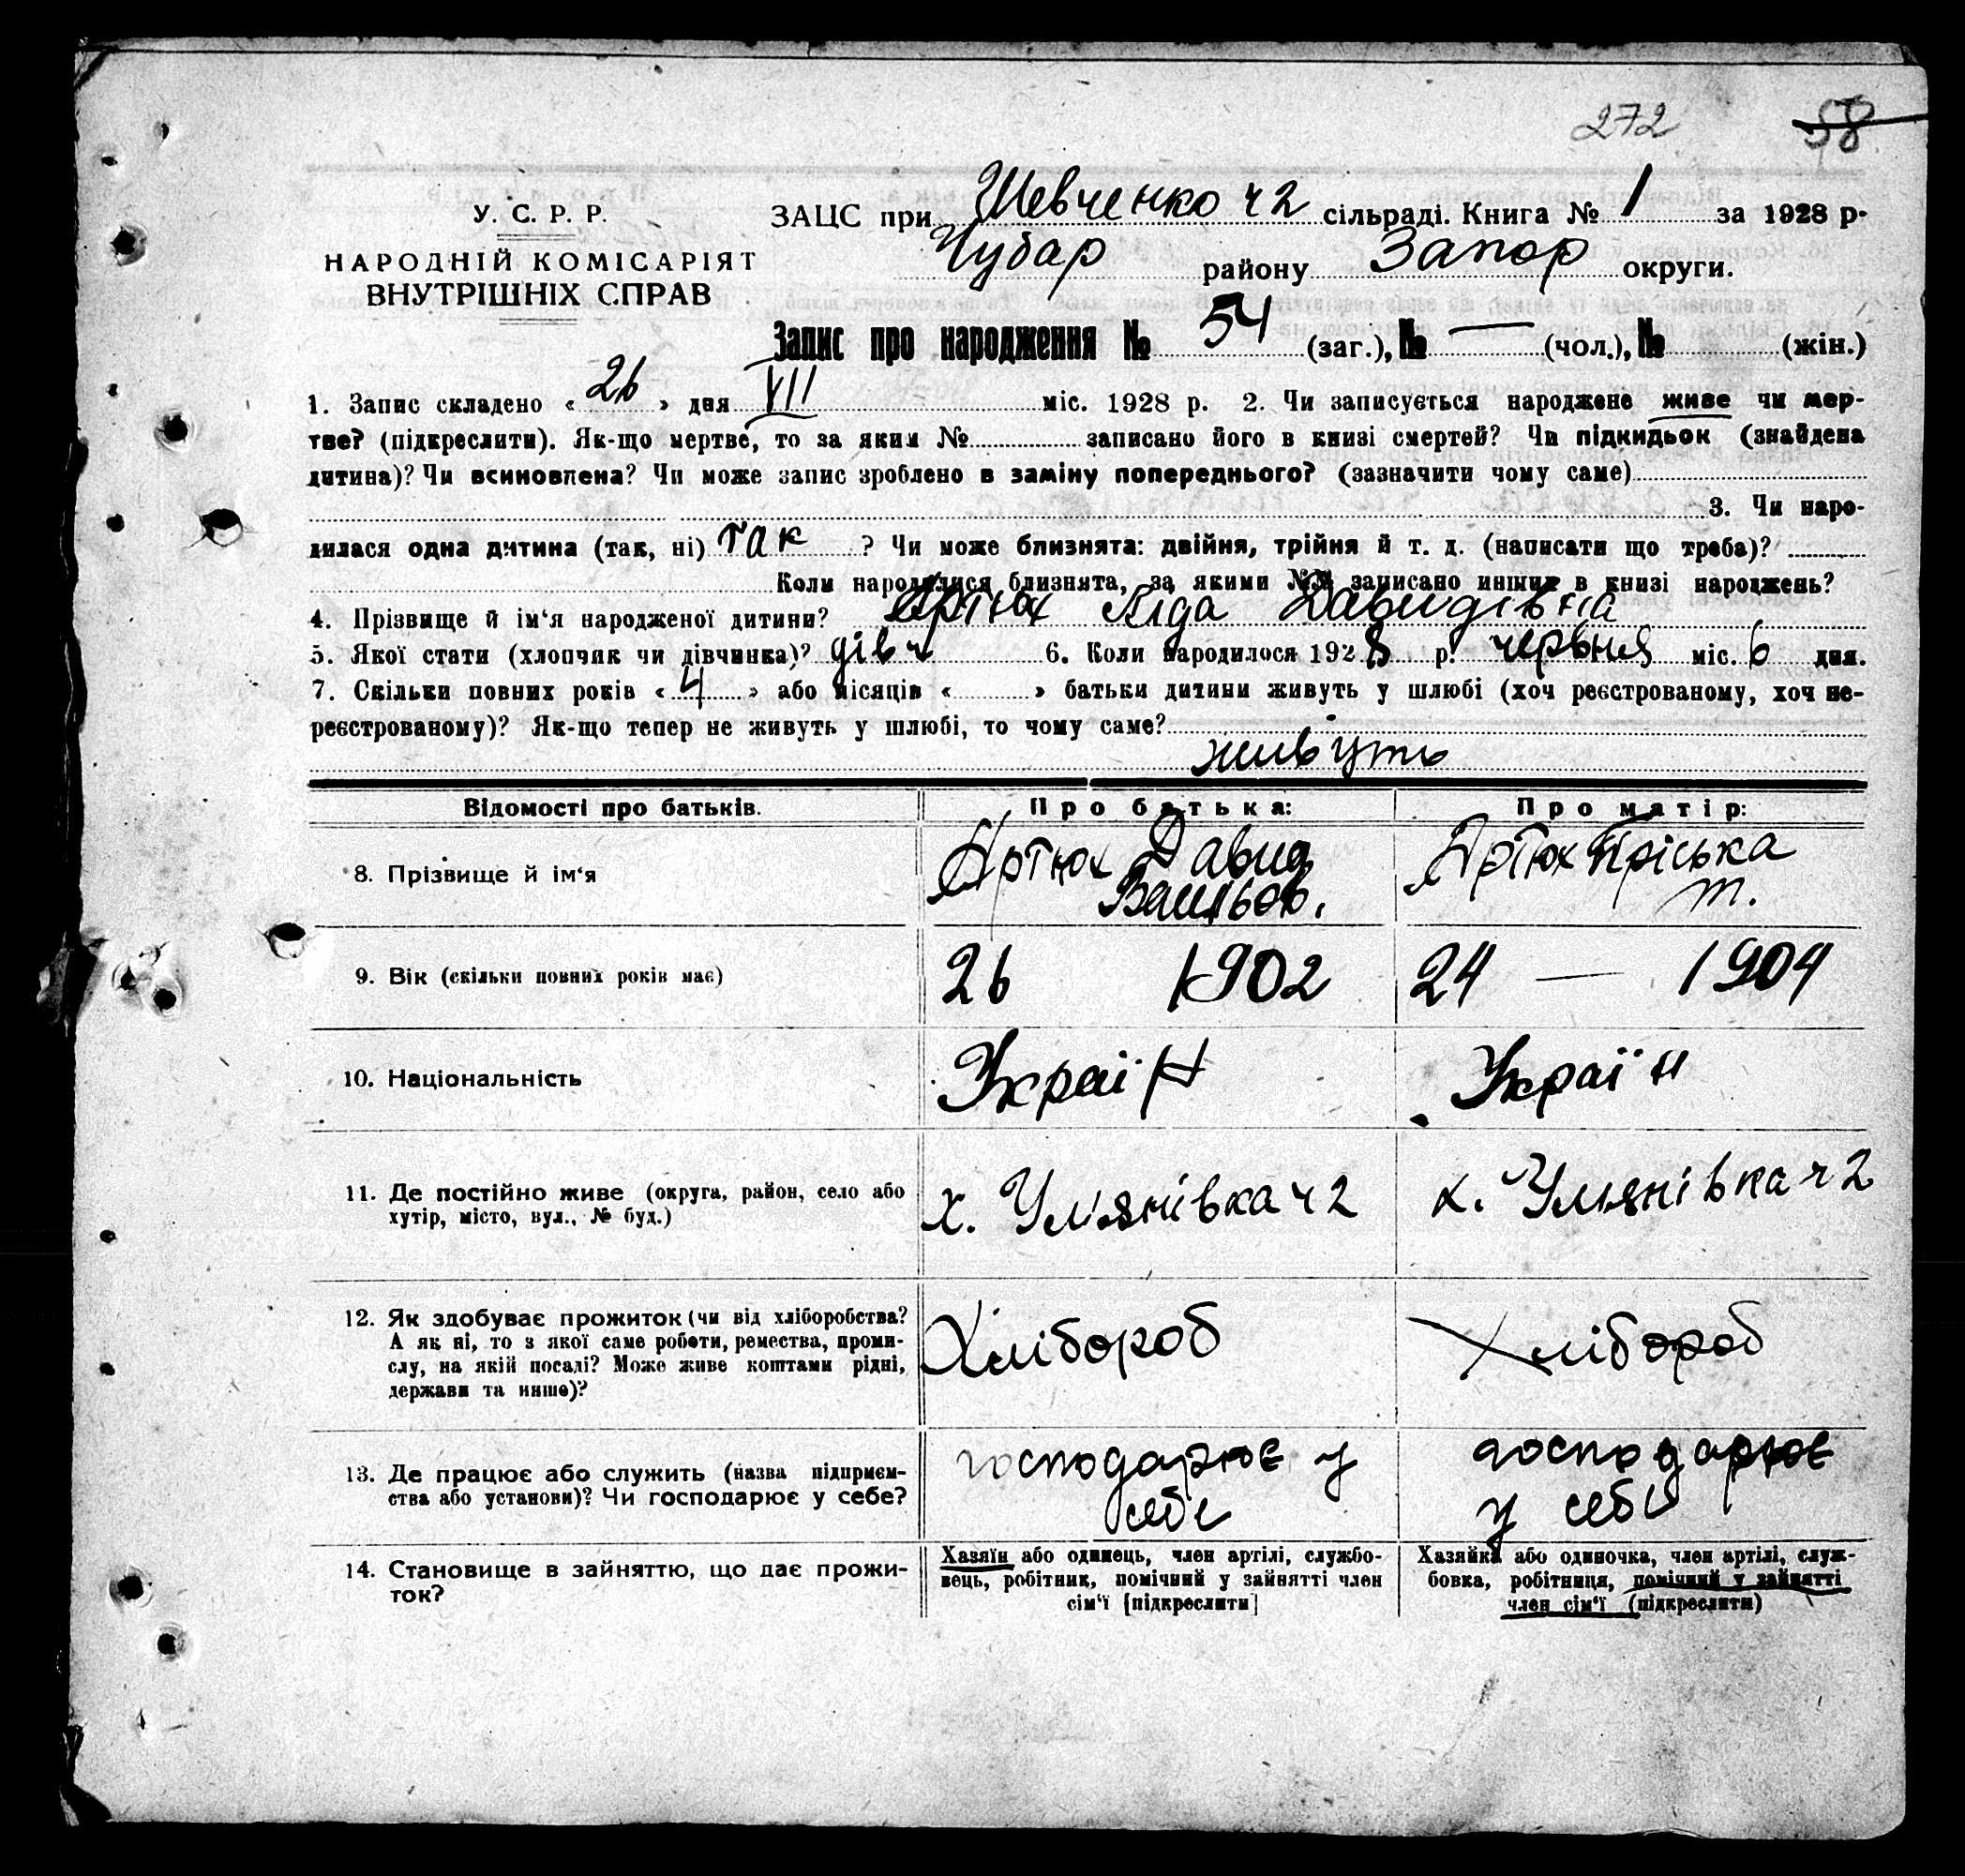 272 58
У. С. Р. Р.
НАРОДНІЙ КОМІСАРІЯТ
ВНУТРІШНІХ СПРАВ
ЗАЦС при Шевченко ч 2 сільраді. Книга № 1 за 1928 р.
Чубар району Запор округи.
Запис про народження № 54 (заг.), № — (чол.), № (жін.)
1. Запис складено « 26 » дня VII міс. 1928 р. 2. Чи записується народжене живе чи мер-
тве? (підкреслити). Як-що мертве, то за яким № записано його в книзі смертей? Чи підкидьок (знайдена
дитина)? Чи всиновлена? Чи може запис зроблено в заміну попереднього? (зазначити чому саме)
3. Чи наро-
дилася одна дитина (так, ні) так ? Чи може близнята: двійня, трійня й т. д. (написати що треба)?
Коли народилися близнята, за якими №№ записано инших в книзі народжень?
4. Прізвище й ім‘я народженої дитини? Артюх Ліда Давидівна
5. Якої стати (хлопчик чи дівчинка)? дівч 6. Коли народилося 1928 р. червня міс. 6 дня.
7. Скільки повних років « 4 » або місяців « » батьки дитини живуть у шлюбі (хоч реєстрованому, хоч не-
реєстрованому)? Як-що тепер не живуть у шлюбі, то чому саме?
живуть
Відомості про батьків. Про батька: Про матір:
8. Прізвище й ім‘я Артюх Давид Артюх Пріська
Васильов. Т.
9. Вік (скільки повних років має) 26 1902 24 — 1904
10. Національність Україн Україн
11. Де постійно живе (округа, район, село або х. Улянівка ч 2 х. Улянівка ч 2
хутір, місто, вул., № буд.)
12. Як здобуває прожиток (чи від хліборобства? Хлібороб Хлібороб
А як ні, то з якої саме роботи, ремества, проми-
слу, на якій посаді? Може живе коштами рідні,
держави та инше)?
13. Де працює або служить (назва підприєм- господарює у господарює
ства або установи)? Чи господарює у себе? себе у себе
14. Становище в зайняттю, що дає прожи- Хазяїн або одинець, член артілі, службо- Хазяйка або одиночка, член артілі, служ-
ток? вець, робітник, помічний у зайнятті член бовка, робітниця, помічний у зайнятті
сім‘ї [підкреслити] член сім‘ї (підкреслити)